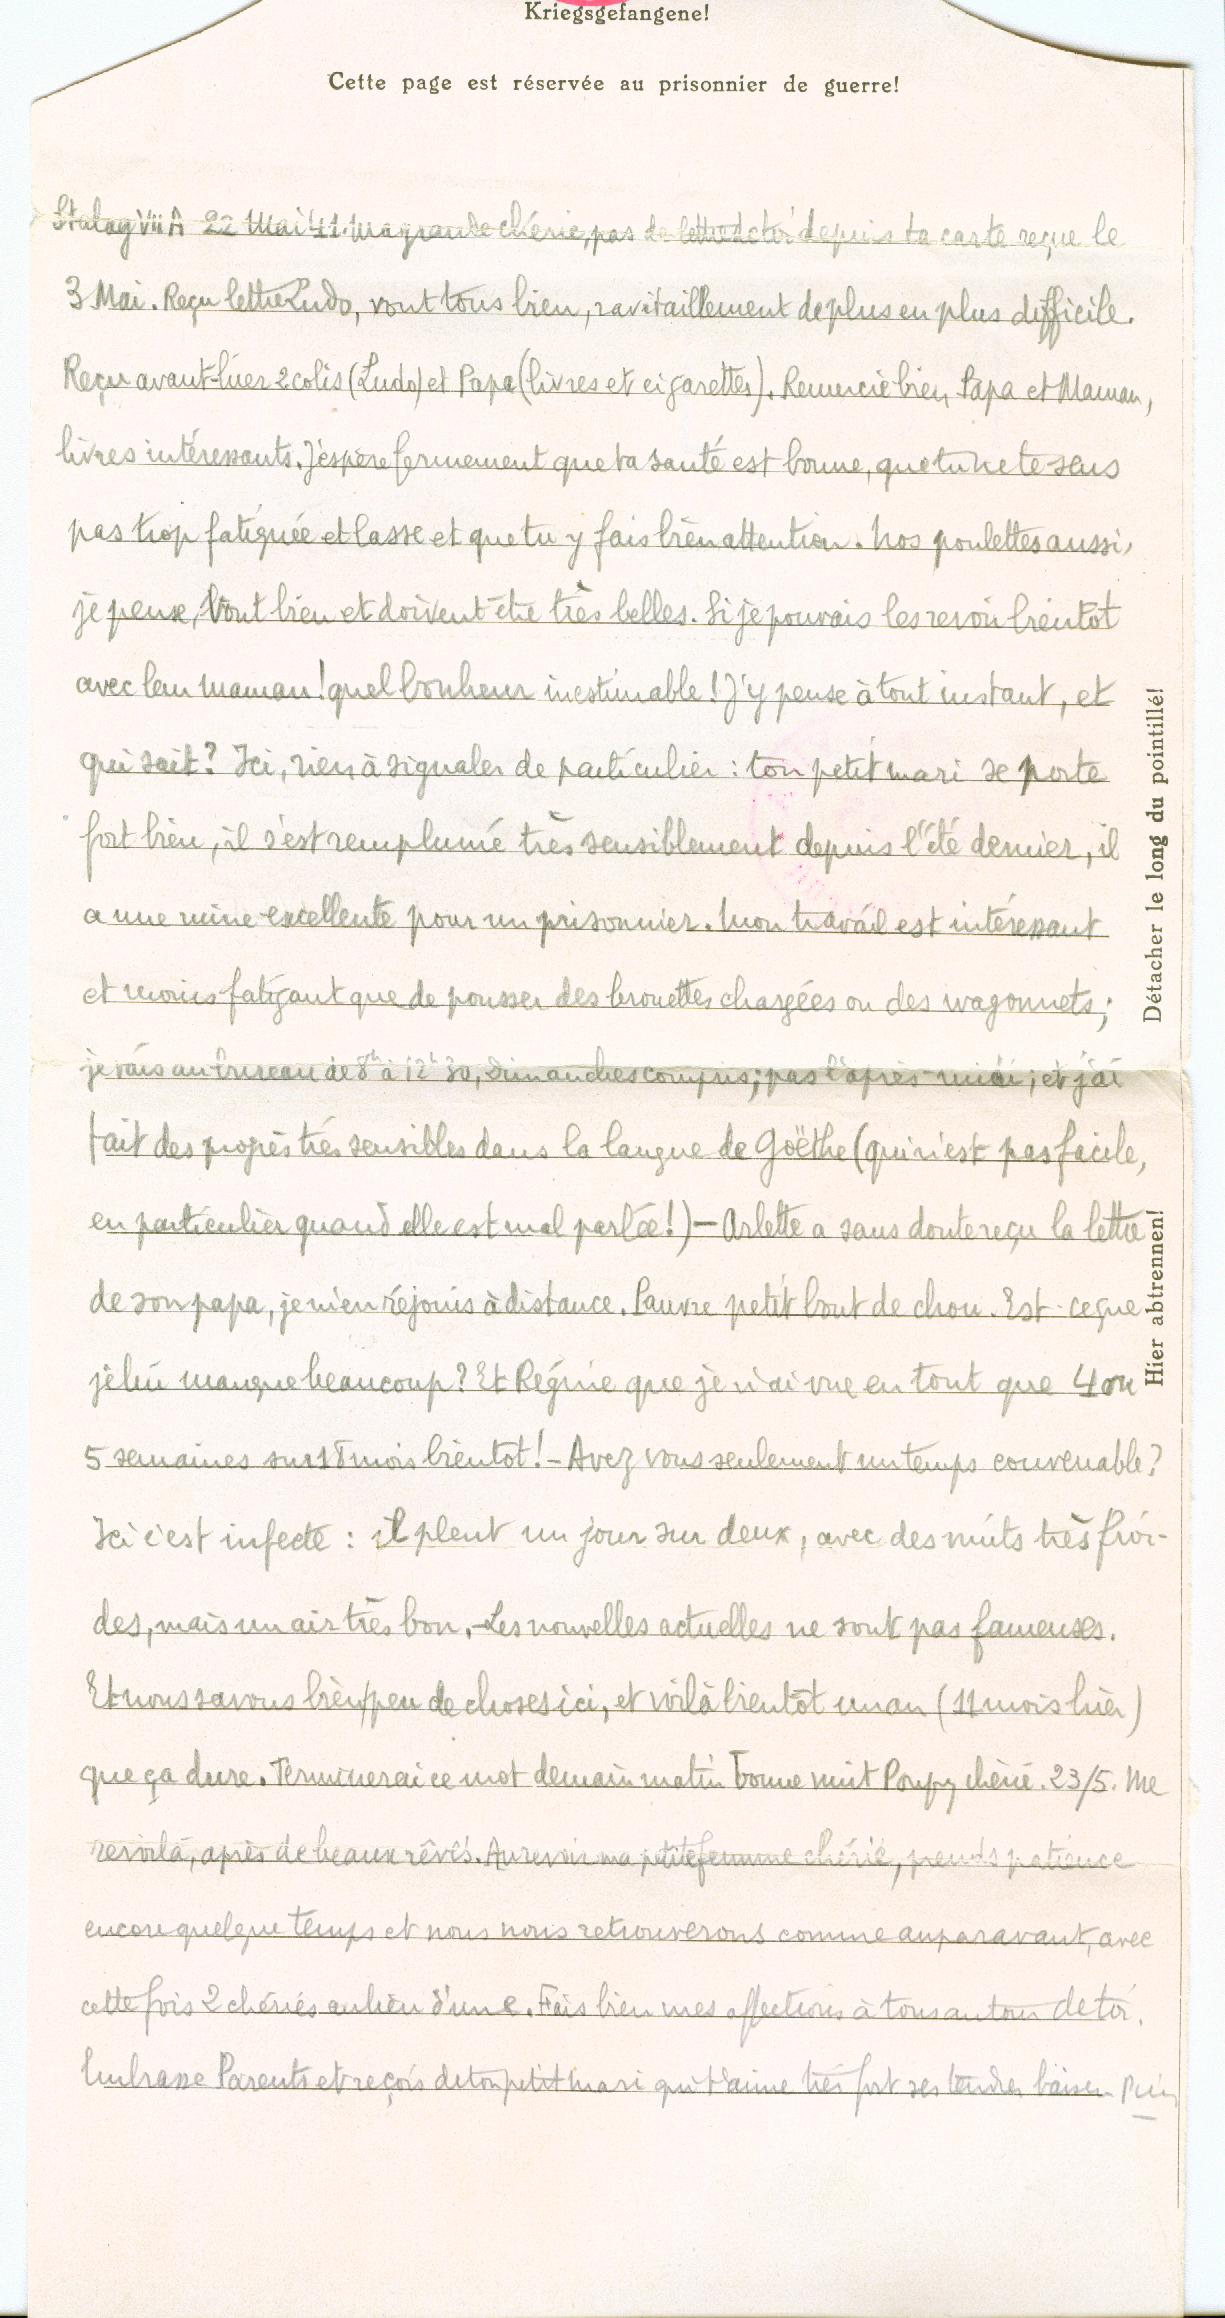 Kriegsgefangene!
Cette page est réservée au prisonnier de guerre!
Stalag VII A 22 Mai 41. Ma grande chérie, pas de lettre de toi depuis ta carte reçue le
3 Mai. Reçu lettre Ludo, vont tous bien, ravitaillement de plus en plus difficile.
Reçu avant-hier 2 colis (Ludo) et Papa (livres et cigarettes). Remercie bien Papa et Maman,
livres intéressants. J'espère fermement que ta santé est bonne, que tu ne te sens
pas trop fatiguée et lasse et que tu y fais bien attention. Nos poulettes aussi,
je pense, vont bien et doivent être très belles. Si je pouvais les revoir bientôt
avec leur maman! quel bonheur inestimable! J'y pense à tout instant, et
qui sait? Ici, rien à signaler de particulier : ton petit mari se porte
fort bien, il s'est remplumé très sensiblement depuis l'été dernier, il
a une mine excellente pour un prisonnier. Mon travail est intéressant
et moins fatigant que de pousser des brouettes chargées ou des wagonnets;
je vais au bureau de 8h à 12h 30, dimanches compris; pas l'après-midi; et j'ai
fait des progrès très sensibles dans la langue de Goëthe (qui n'est pas facile,
en particulier quand elle est mal parlée!) — Arlette a sans doute reçu la lettre
de son papa, je m'en réjouis à distance. Pauvre petit bout de chou. Est-ce que
je lui manque beaucoup? Et Régine que je n'ai vue en tout que 4 ou
5 semaines sur 18 mois bientôt! - Avez vous seulement un temps convenable?
Ici c'est infecte : il pleut un jour sur deux, avec des nuits très froi-
des, mais un air très bon. - Les nouvelles actuelles ne sont pas fameuses.
Et nous savons bien peu de choses ici, et voilà bientôt un an (11 mois hier)
que ça dure. Terminerai ce mot demain matin bonne nuit Poupy chérie. 23/5. Me
revoilà, après de beaux rêves. Au revoir ma petite femme chérie, prends patience
encore quelque temps et nous nous retrouverons comme auparavant, avec
cette fois 2 chéries au lieu d'une. Fais bien mes affections à tous autour de toi.
Embrasse Parents et reçois de ton petit mari qui t'aime très fort ses tendres baisers
Détacher le long du pointillé!
Hier abtrennen!